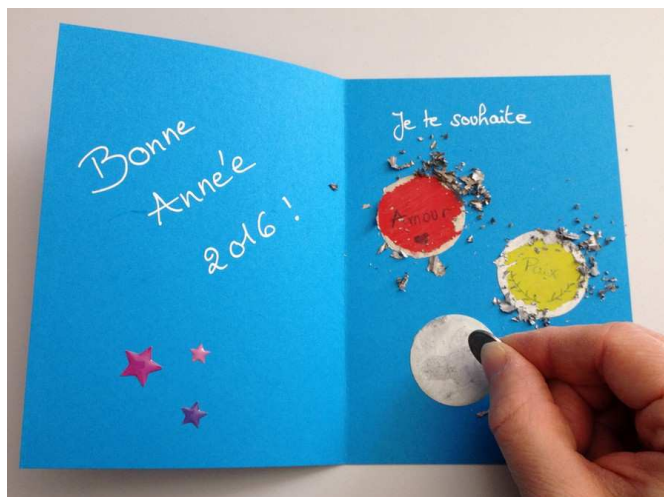 Bonne
Année
2016 !
Je te souhaite
Amour
Paix